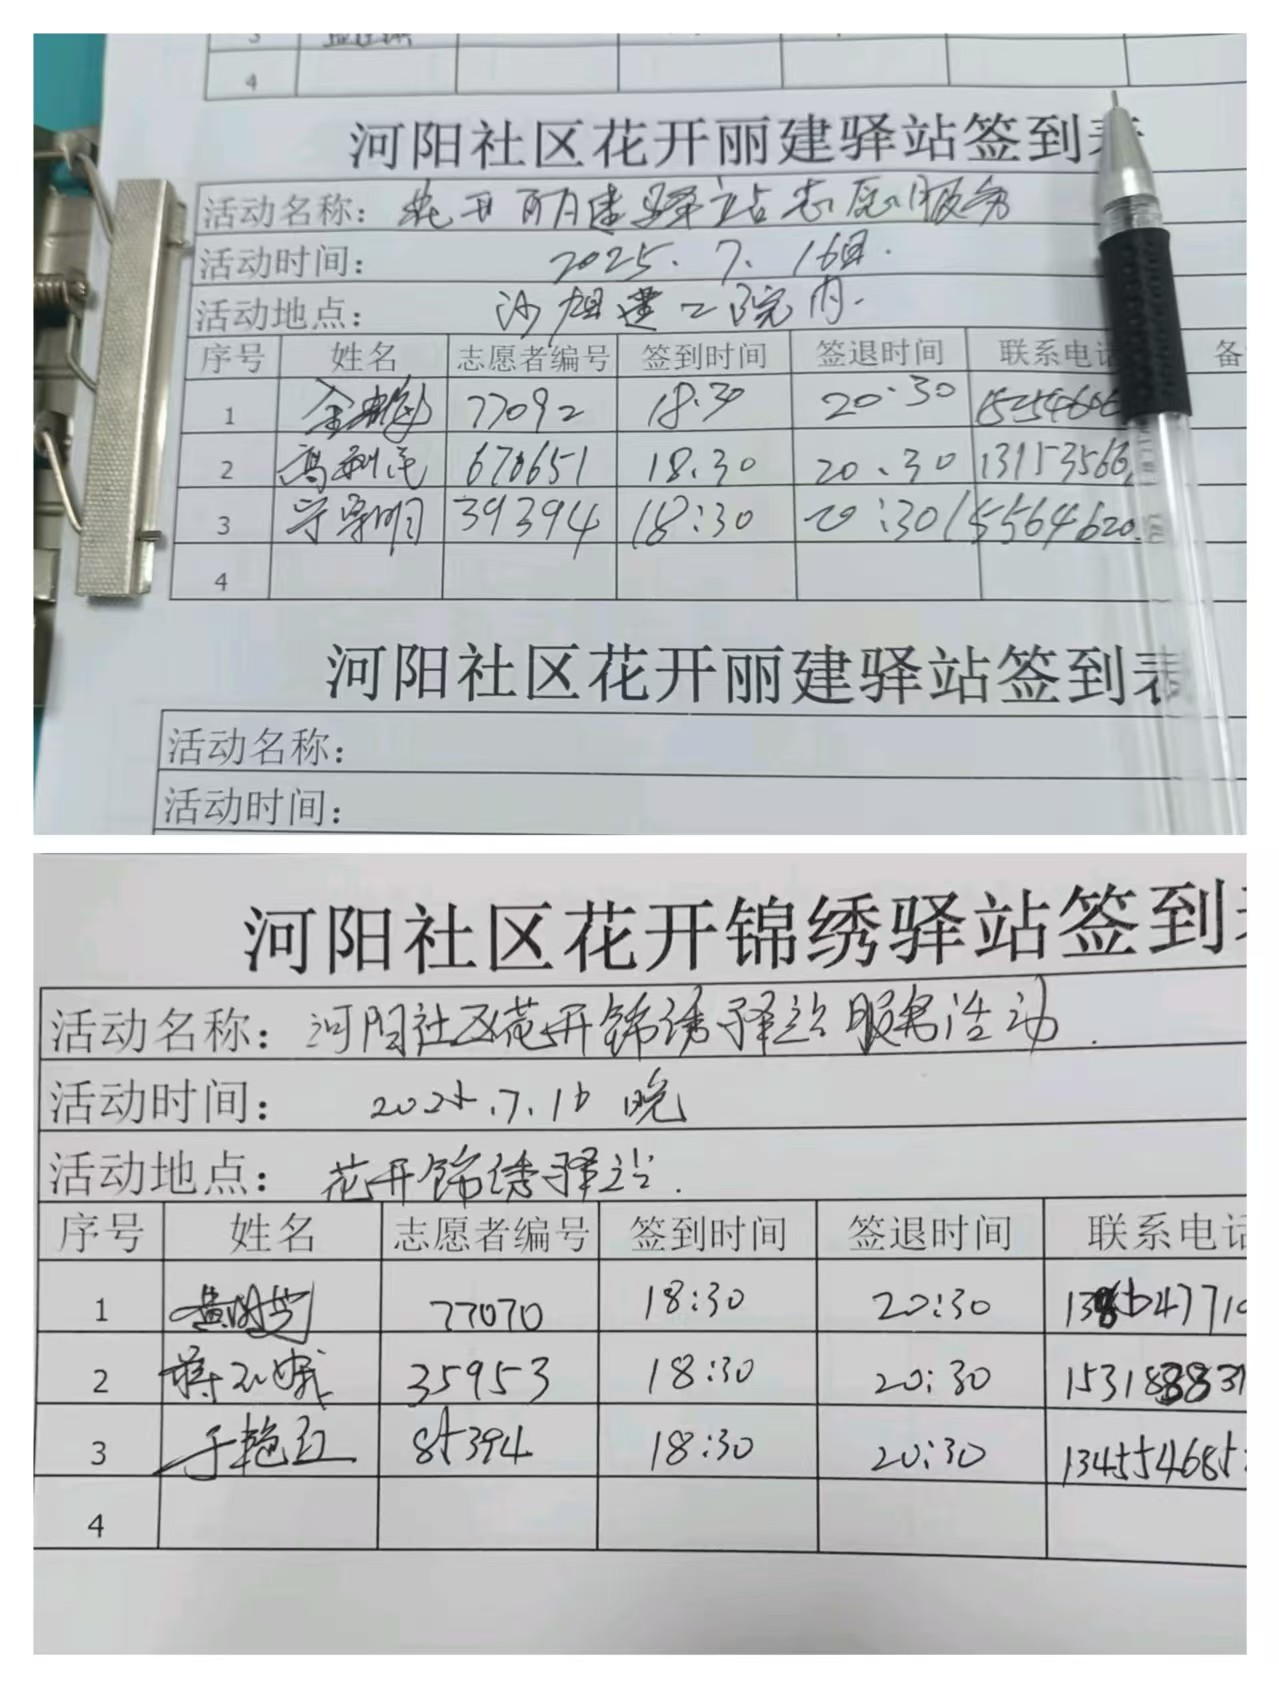 3
4
河阳社区花开丽建驿站签到表
活动名称: 花开丽建驿站志愿服务
活动时间: 2025.7.16日.
活动地点: 沙旭建工院内.
序号 姓名 志愿者编号 签到时间 签退时间 联系电话 备
1 77092 18:30 20:30 15254606
2 高利民 670651 18.30 20.30 13153566
3 宗明 39394 18:30 20:30 15564620
4
河阳社区花开丽建驿站签到表
活动名称:
活动时间:
河阳社区花开锦绣驿站签到
活动名称: 河阳社区花开锦绣驿站服务活动.
活动时间: 2025.7.16 晚
活动地点: 花开锦绣驿站.
序号 姓名 志愿者编号 签到时间 签退时间 联系电话
1 77070 18:30 20:30 138647710
2 35953 18:30 20:30 153188831
3 于艳红 85394 18:30 20:30 134554685
4